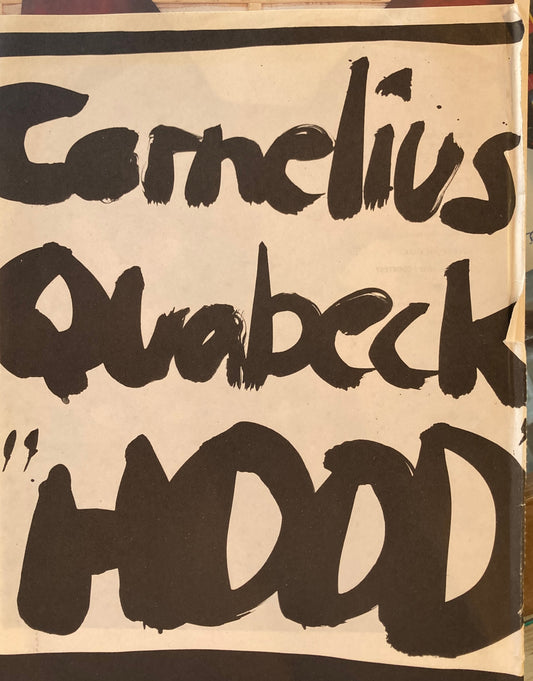 Cornelius
Quabeck
"HOOD"